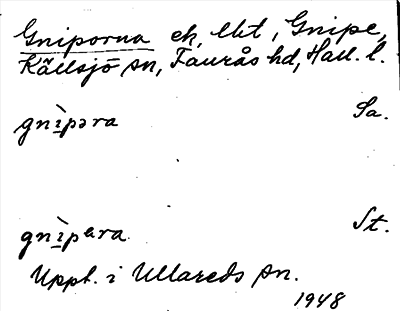 Gniporna eh, lkt, Gnipe,
Källsjö sn, Faurås hd, Hall. l.
gnìpəra Sa.
gnìpɐra St.
Uppt. i Ullareds sn.
1948